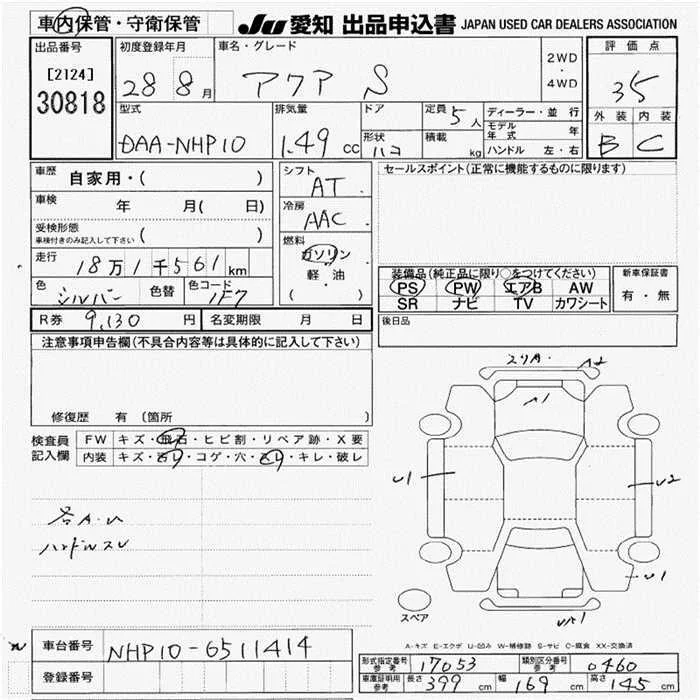 車内保管・守衛保管 JU 愛知 出品申込書 JAPAN USED CAR DEALERS ASSOCIATION
出品番号 初度登録年月 車名・グレード 2WD ・ 4WD 評価点
[2124] 28 8月 アクア S 35
30818
型式 排気量 ドア 定員 5人 ディーラー・並行 外装 内装
DAA-NHP10 1.49 cc 形状 ハコ 積載 kg モデル年式 年 B C
ハンドル 左・右
車歴 自家用・( ) シフト AT セールスポイント(正常に機能するものに限ります)
車検 年 月( 日) 冷房 AAC
受検形態 車検付きのみ記入して下さい ( )
燃料 ガソリン 軽油 ( )
走行 18万1千561km 装備品(純正品に限り○をつけてください) 新車保証書
色 シルバー 色替 色コード 1F7 PS PW エアB AW 有・無
SR ナビ TV カワシート
R券 9,130円 名変期限 月 日 後日品
注意事項申告欄(不具合内容等は具体的に記入して下さい)
修復歴 有 (箇所 )
検査員記入欄 FW キズ・飛石・ヒビ割・リペア跡・X要
内装 キズ・汚レ・コゲ・穴・スリ・キレ・破レ
各A.U
ハンドルスレ
スリA. A2
A1
U1 U2
U1
スペア
A-キズ E-エクボ U-凹み W-補修跡 S-サビ C-腐食 XX-交換済
車台番号 NHP10-6511414
登録番号
形式指定番号 参考 17053 類別区分番号 参考 0460
車庫証明用 参考 長さ 399 cm 幅 169 cm 高さ 145 cm